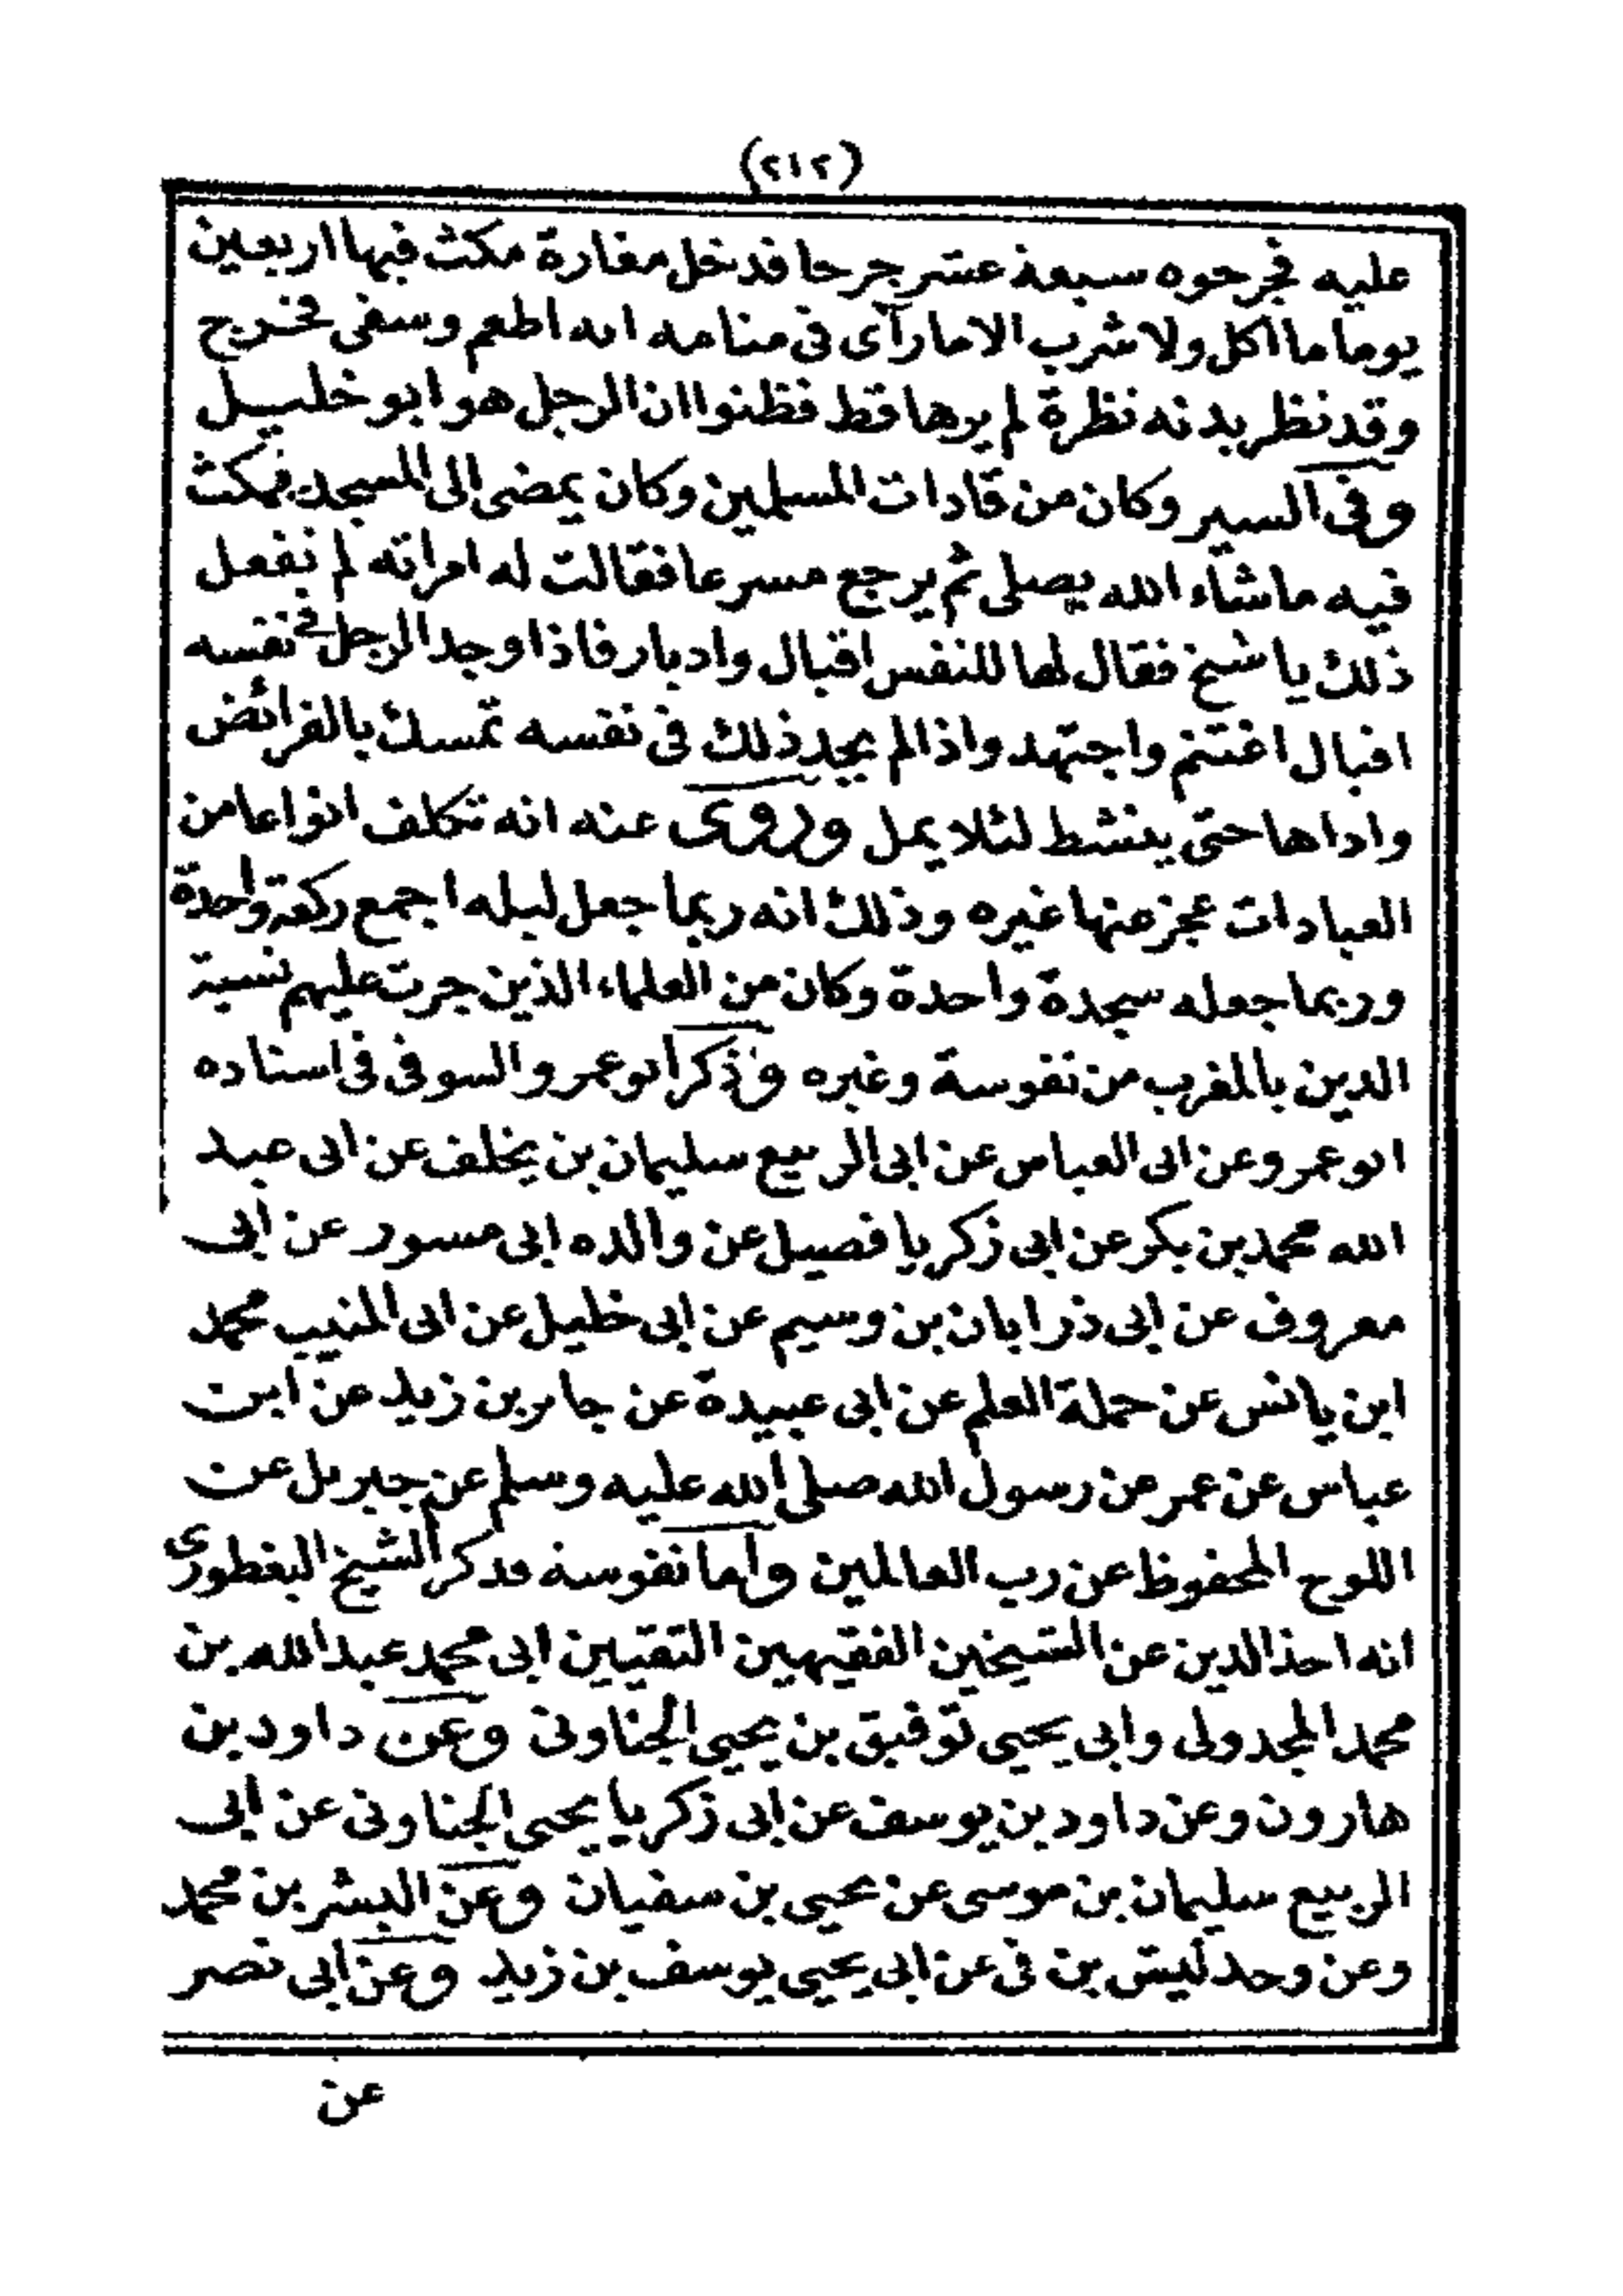 (٢١٢)
عليه فجرحوه سبعة عشر جرحا فدخل مغارة مكث فيها اربعين
يوما ما اكل ولا شرب الا ما رآى فى منامه انه اطعم وسقى فخرج
وقد نظر بدنه نظرة لم يرها قط فظنوا ان الرجل هو ابو خليل
وفى السير وكان من قادات المسلمين وكان يمضى الى المسجد فيمكث
فيه ما شاء الله يصلى ثم يرجع مسرعا فقالت له امراته لم تفعل
ذلك يا شيخ فقال لها للنفس اقبال وادبار فاذا وجد الرجل فى نفسه
اقبال اغتنم واجتهد واذا لم يجد ذلك فى نفسه تمسك بالفرائض
واداها حتى ينشط لئلا يمل وروى عنه انه تكلف انواعا من
العبادات عجز عنها غيره وذلك انه ربما جعل ليله اجمع ركعة واحدة
وربما جعله سجدة واحدة وكان من العلماء الذين جرت عليهم نسبة
الدين بالمغرب من نفوسة وغيره وذكر ابو عمرو السوفى فى اسناده
ابو عمرو عن ابى العباس عن ابى الربيع سليمان بن يخلف عن ابى عبد
الله محمد بن بكر عن ابى زكريا فصيل عن والده ابى مسور عن ابى
معروف عن ابى ذر ابان بن وسيم عن ابى خليل عن ابى المنيب محمد
ابن يانس عن حملة العلم عن ابى عبيدة عن جابر بن زيد عن ابن
عباس عن عمر عن رسول الله صلى الله عليه وسلم عن جبريل عن
اللوح المحفوظ عن رب العالمين واما نفوسة فذكر الشيخ البغطورى
انه اخذ الدين عن الشيخين الفقيهين التقيين ابى محمد عبد الله بن
محمد المجدولى وابى يحيى توفيق بن يحيى الجناونى وعن داود بن
هارون وعن داود بن يوسف عن ابى زكريا يحيى الجناونى عن ابى
الربيع سليمان بن موسى عن يحيى بن سفيان وعن البشر بن محمد
وعن وحدليش بن فى عن ابى يحيى يوسف بن زيد وعن ابى نصر
عن